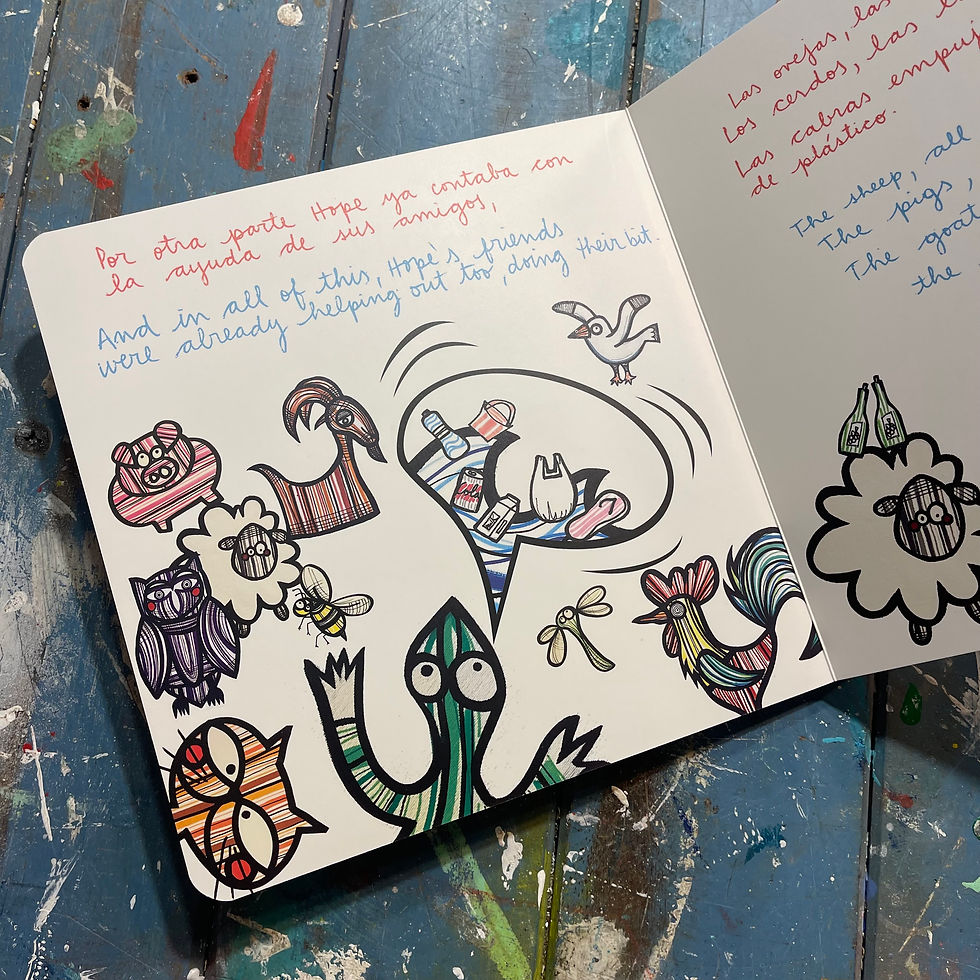 Por otra parte Hope ya contaba con
la ayuda de sus amigos,
And in all of this, Hope's friends
were already helping out too, doing their bit.
Las ovejas, las
Los cerdos, las
Las cabras
de plástico.
The sheep, all
The pigs,
The goat
the